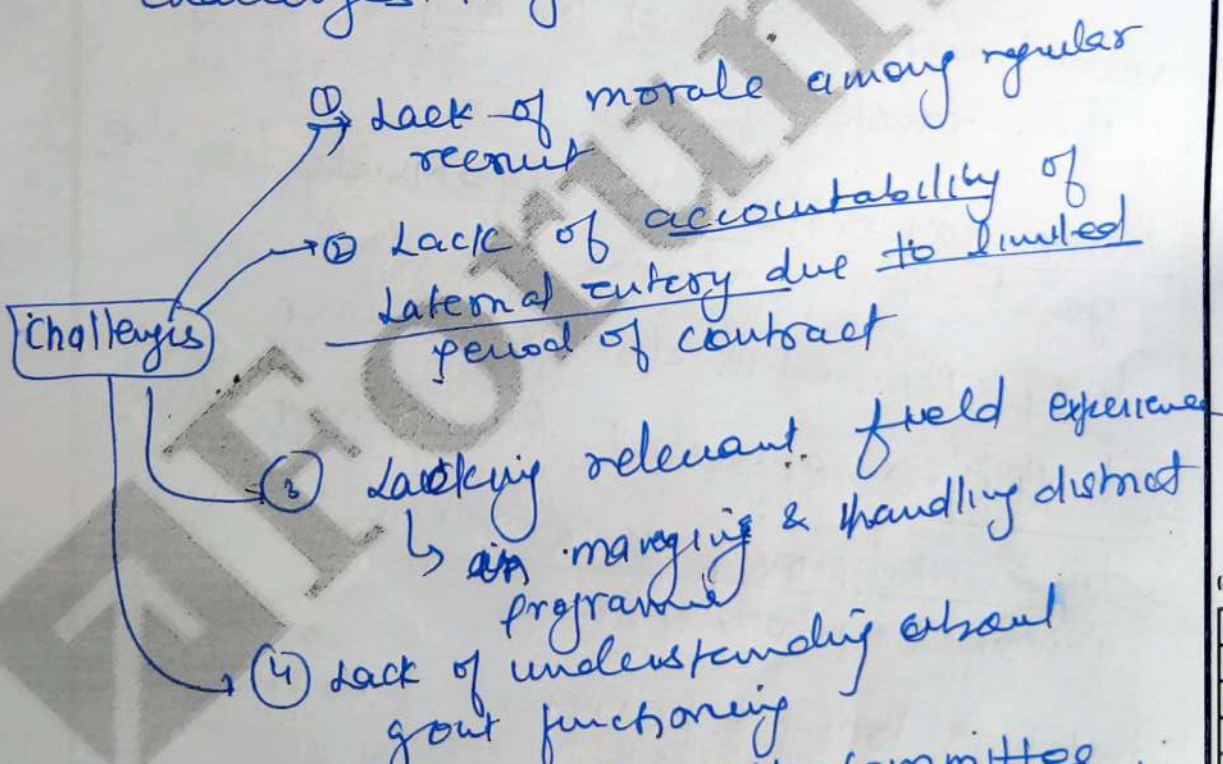 challenges
① Lack of morale among regular
recruit
② Lack of accountability of
Laternal entery due to limited
period of contract
Challenges
③ Lackking relevant field experience
↳ in maneging & handling district
programme
④ Lack of understanding about
govt functioning
committee
Forum